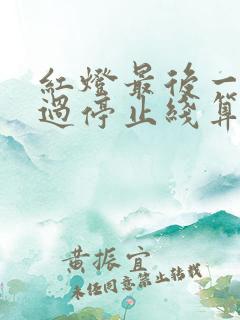 紅燈最後一
過停止綫算
黄振宜
未经同意禁止转载